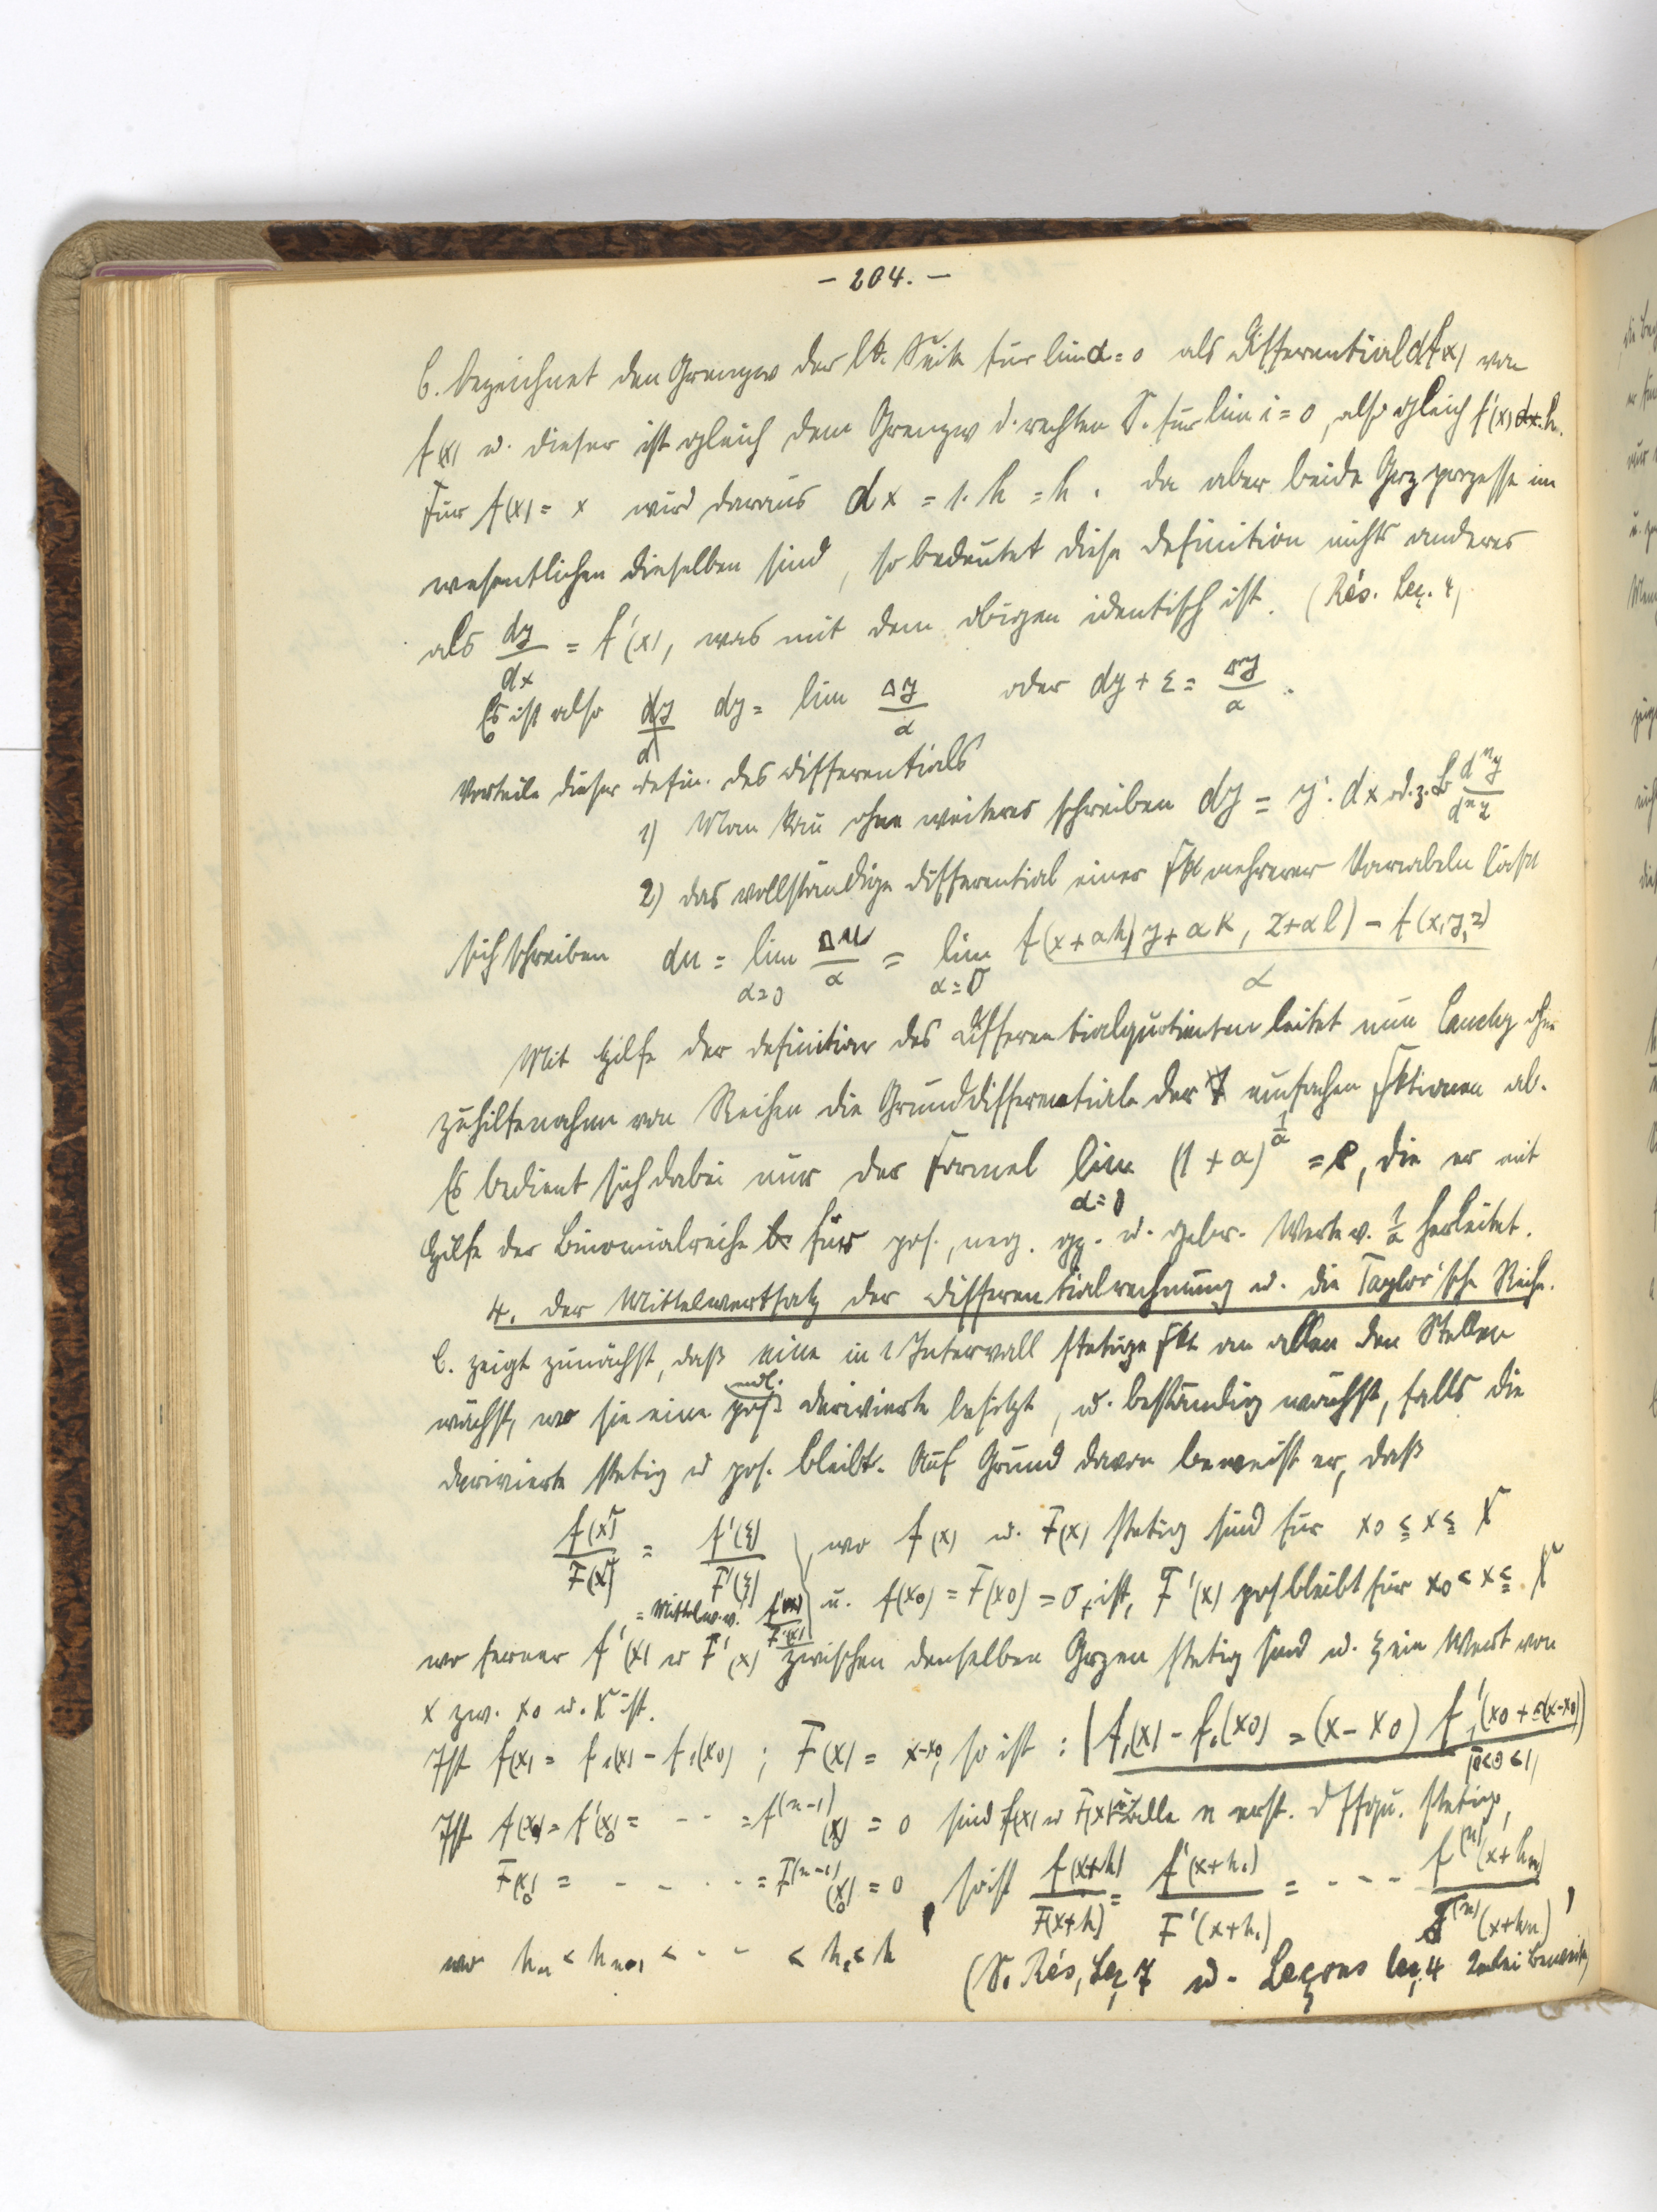 – 204. –
C. bezeichnet den Grenzw der lk. Seite für lim α = 0 als Differential df(x) von
f(x) u. dieser ist gleich dem Grenzw d. rechten S. für lim i = 0, also gleich f'(x) h.
Für f(x) = x wird daraus dx = 1. h = h. Da aber beide Grzprozesse im
wesentlichen dieselben sind, so bedeutet diese Definition nichts anderes
als dy/dx = f'(x), was mit dem obigen identisch ist. (Rés. Leç. 4)
Es ist also dy = lim Δy/α oder dy + ε = Δy/α.
Vorteile dieser Defin. des Differentials
1) Man kan ohne weiteres schreiben dy = y'. dx od. z. B dⁿy/dⁿz
2) das vollständige Differential einer Fkt mehrerer Variabeln läßt
sich schreiben du = lim α=0 Δu/α = lim α=0 f(x+αh, y+αk, z+αl) – f(x,y,z) / α
Mit Hilfe der Definition des Differentialquotienten leitet nun Cauchy ohne
Zuhilfenahme von Reihen die Grunddifferentiale der einfachen Fktionen ab.
Es bedient sich dabei nur der Formel lim α=0 (1 + α)^1/α = e, die er mit
Hilfe der Binomialreihe für pos., neg. gz. u. gebr. Werte v. 1/α herleitet.
4. Der Mittelwertsatz der Differentialrechnung u. die Taylor'sche Reihe.
C. zeigt zunächst, daß eine in 1 Intervall stetige Fkt an allen den Stellen
wächst, wo sie eine endl. pos. Derivierte besitzt, u. beständig wächst, falls die
Derivierte stetig u pos. bleibt. Auf Grund davon beweist er, daß
f(X)/F(X) = f'(ξ)/F'(ξ), wo f(x) u. F(x) stetig sind für x0 ≤ x ≤ X
= Mittelw. v. f'(x)/F'(x) u. f(x0) = F(x0) = 0, ist, F'(x) pos bleibt für x0 < x ≤ X
wo ferner f'(x) u F'(x) zwischen denselben Grzen stetig sind u. ξ ein Wert von
x zw. x0 u. X ist.
Ist f(x) = f1(x) – f1(x0); F(x) = x-x0, so ist: f1(x) – f1(x0) = (x – x0) f1'(x0 + θ(x-x0)) 0<θ<1
Ist f(x0) = f'(x0) = - - = f^(n-1)(x0) = 0 sind f(x) u F(x) alle n erst. Dffqu. stetig,
F(x0) = - - . - - = F^(n-1)(x0) = 0, so ist f(x+h)/F(x+h) = f'(x+h1)/F'(x+h1) = - - - f^(n)(x+hn)/F^(n)(x+hn),
wo hn < hn-1 < - - < h1 < h (S. Rés, Leç 7 u. Leçons leç. 4